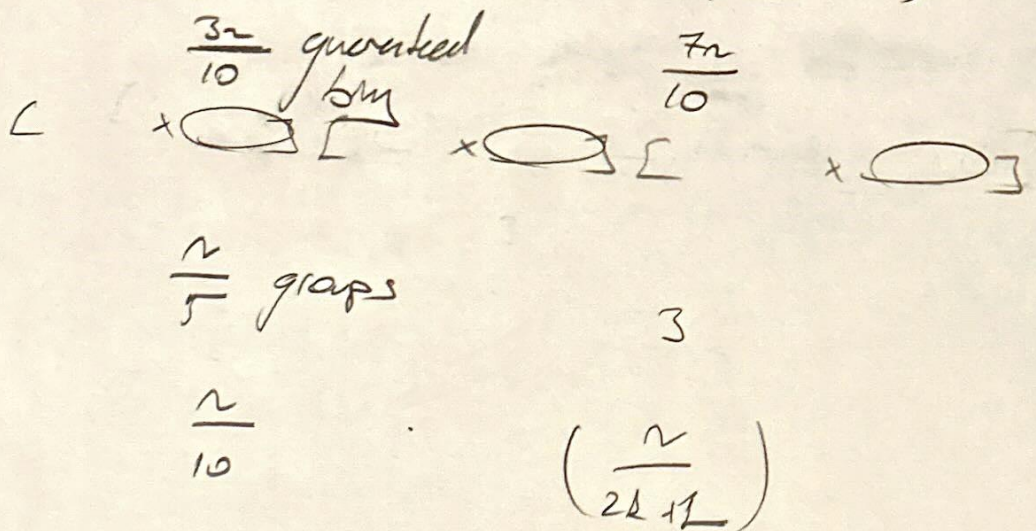 3n/10 guaranteed 7n/10
[ x ] [ x ] [ x ]
n/5 groups
3
n/10 (n/2k+1)